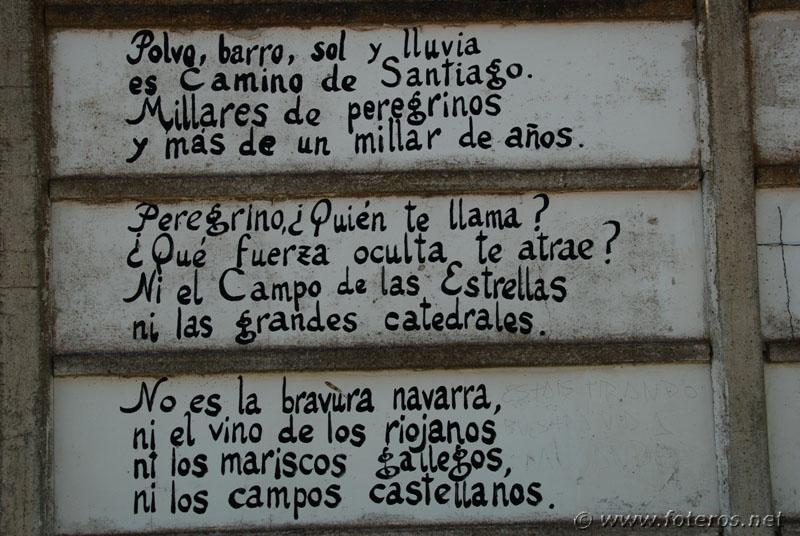 Polvo, barro, sol y lluvia
es Camino de Santiago.
Millares de peregrinos
y más de un millar de años.
Peregrino, ¿Quién te llama?
¿Qué fuerza oculta te atrae?
Ni el Campo de las Estrellas
ni las grandes catedrales.
No es la bravura navarra,
ni el vino de los riojanos
ni los mariscos gallegos,
ni los campos castellanos.
© www.foteros.net